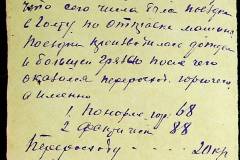 что сего числа была поездка
в Голту по отправке машин
Поездка производилась дождем
и большой грязью после чего
оказался перерасход горючего
а именно
1 По норме гор. 68
2 Фактич. 88
Перерасход 20 кг